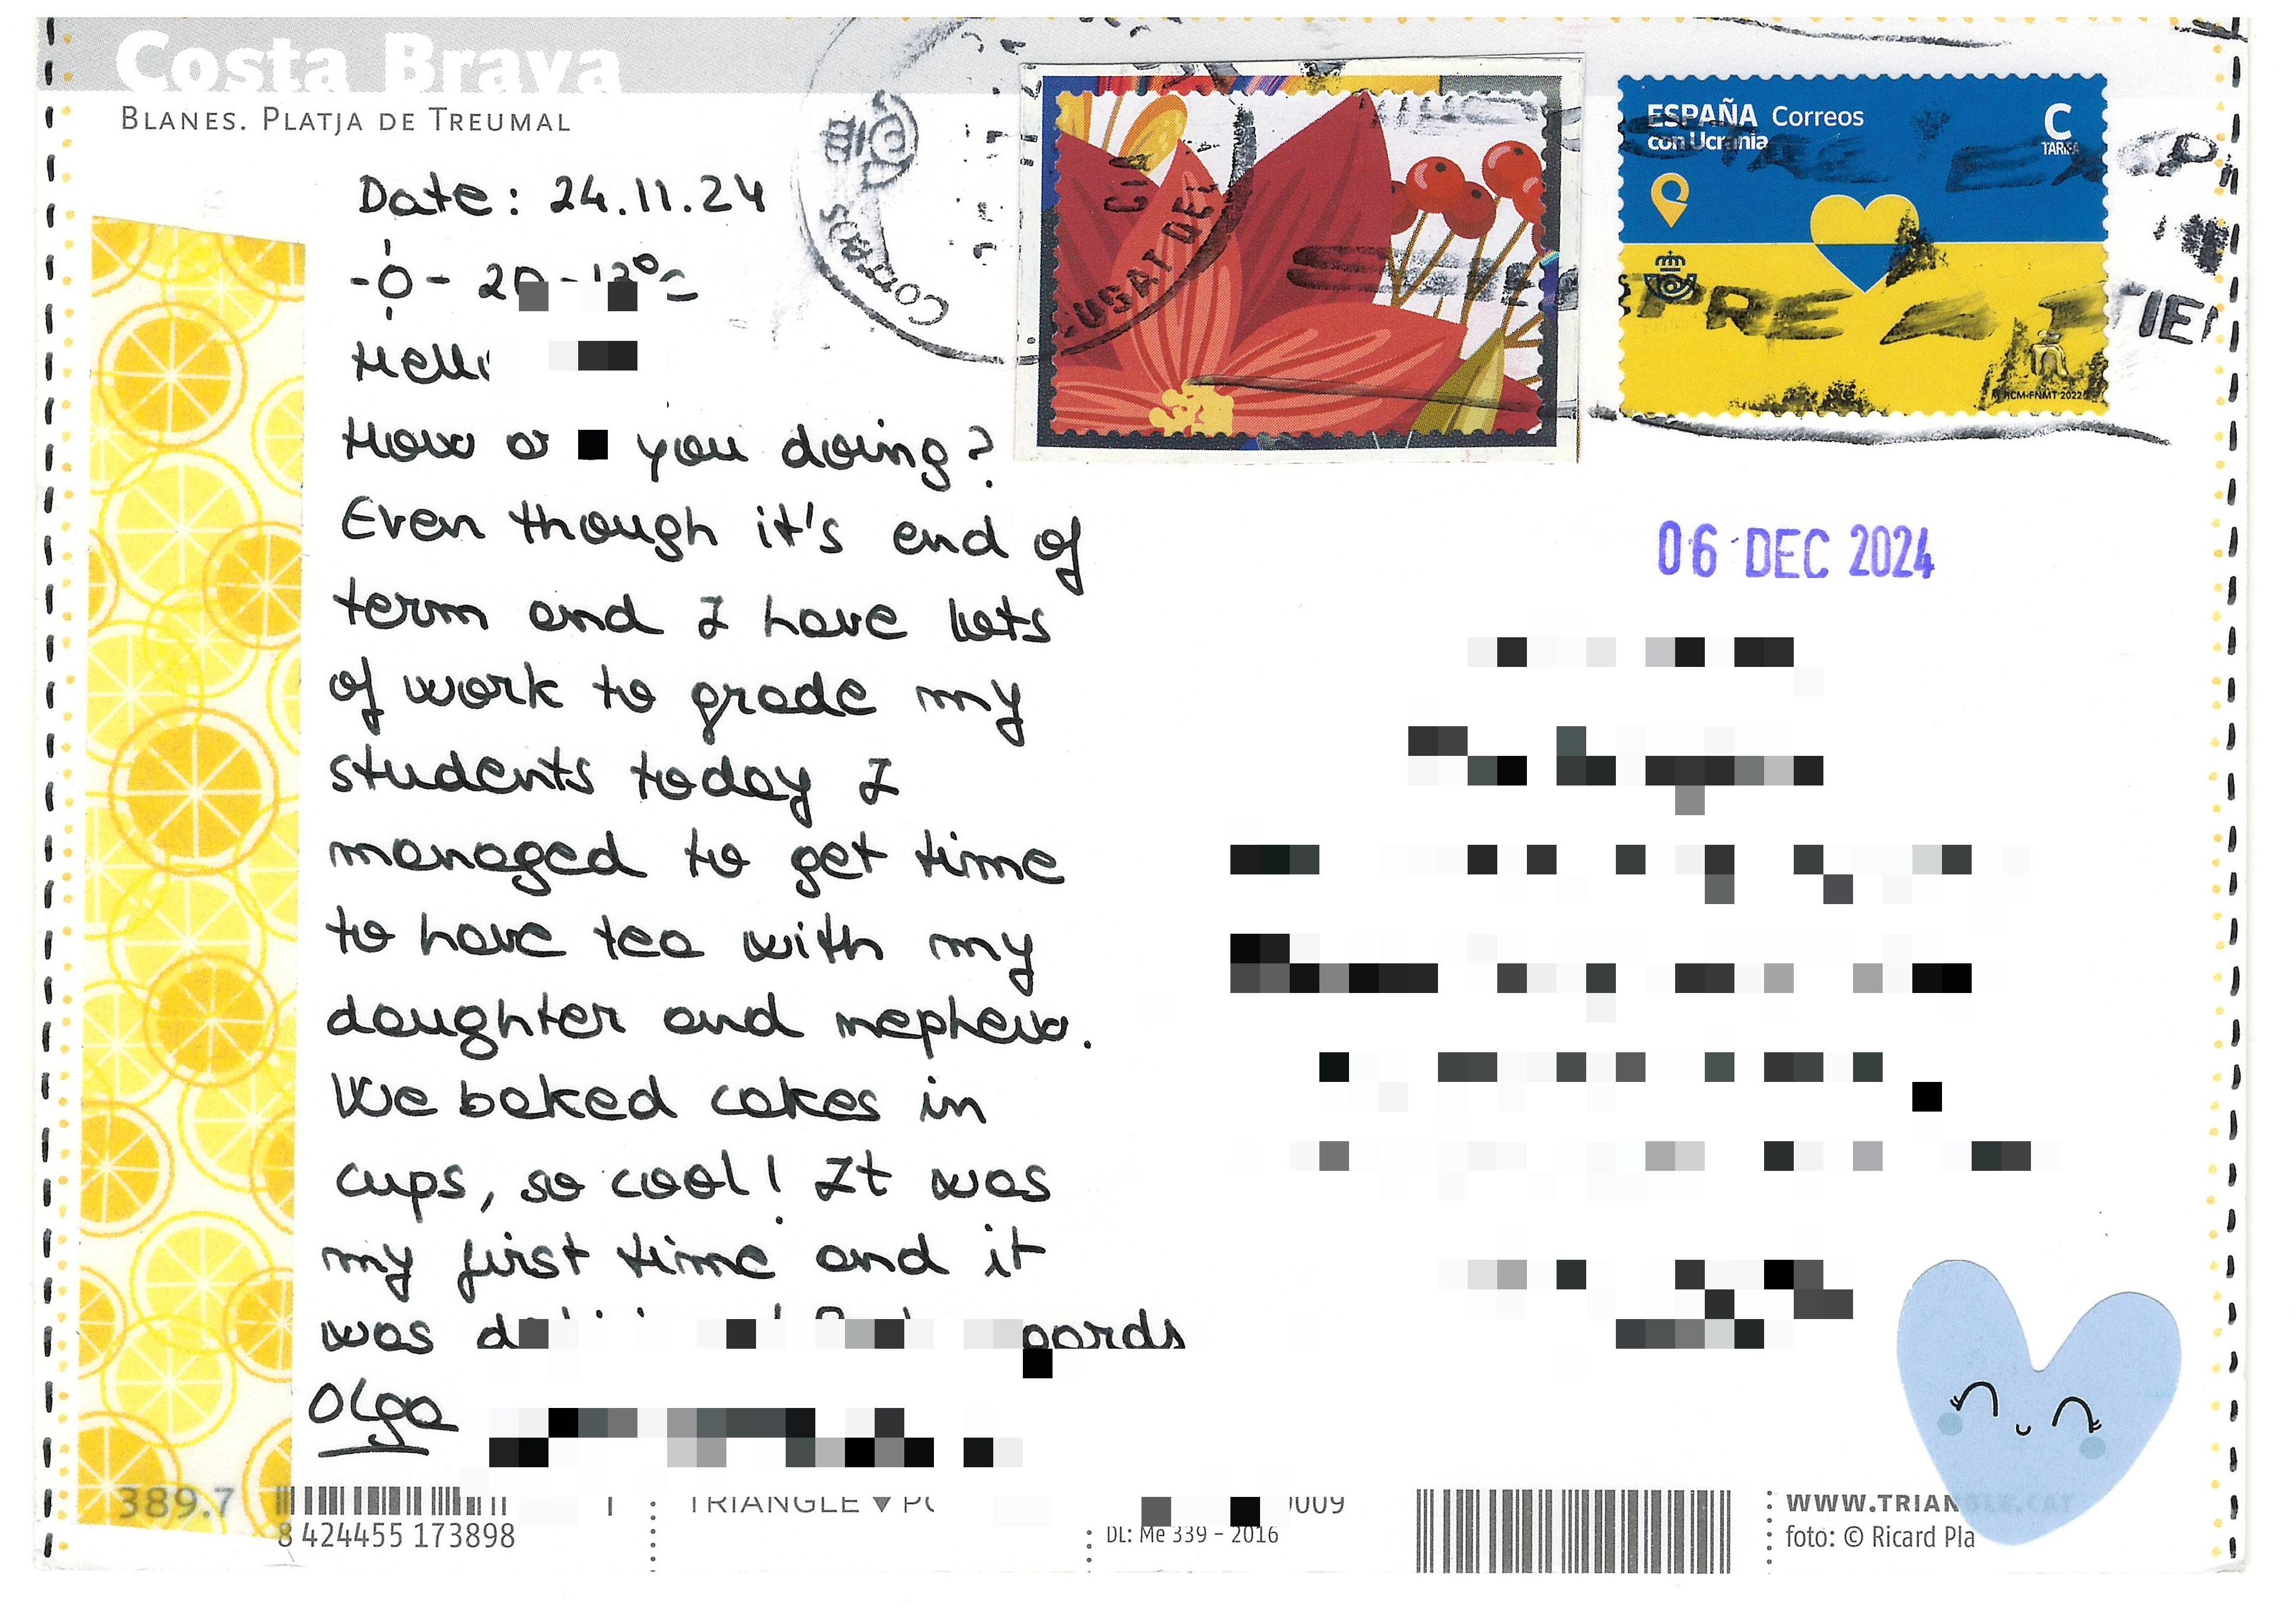 Costa Brava
BLANES. PLATJA DE TREUMAL
ESPAÑA Correos
con Ucrania
C
TARIFA
CORREOS
CUGAT DEL
PRE
Date: 24.11.24
Hello
How are you doing?
Even though it's end of
term and I have lots
of work to grade my
students today I
managed to get time
to have tea with my
daughter and nephew.
We baked cakes in
cups, so cool! It was
my first time and it
was
Olga
06 DEC 2024
389.7
8 424455 173898
TRIANGLE
DL: Me 339 – 2016
WWW.TRIANGLE.CAT
foto: © Ricard Pla